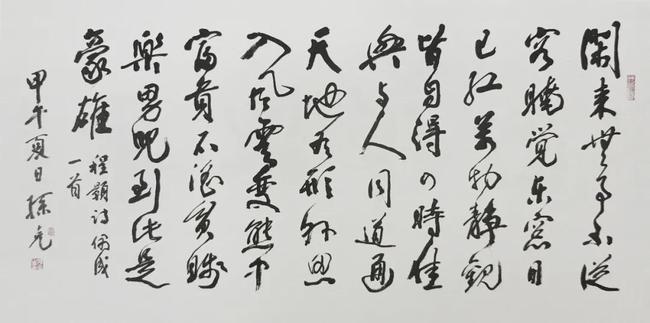 閑来無事不從
容睡覺東窗日
已紅萬物靜觀
皆自得四時佳
興与人同道通
天地有形外思
入風雲變態中
富貴不淫貧賤
樂男兒到此是
豪雄
程顥詩偶成
一首
甲午夏日